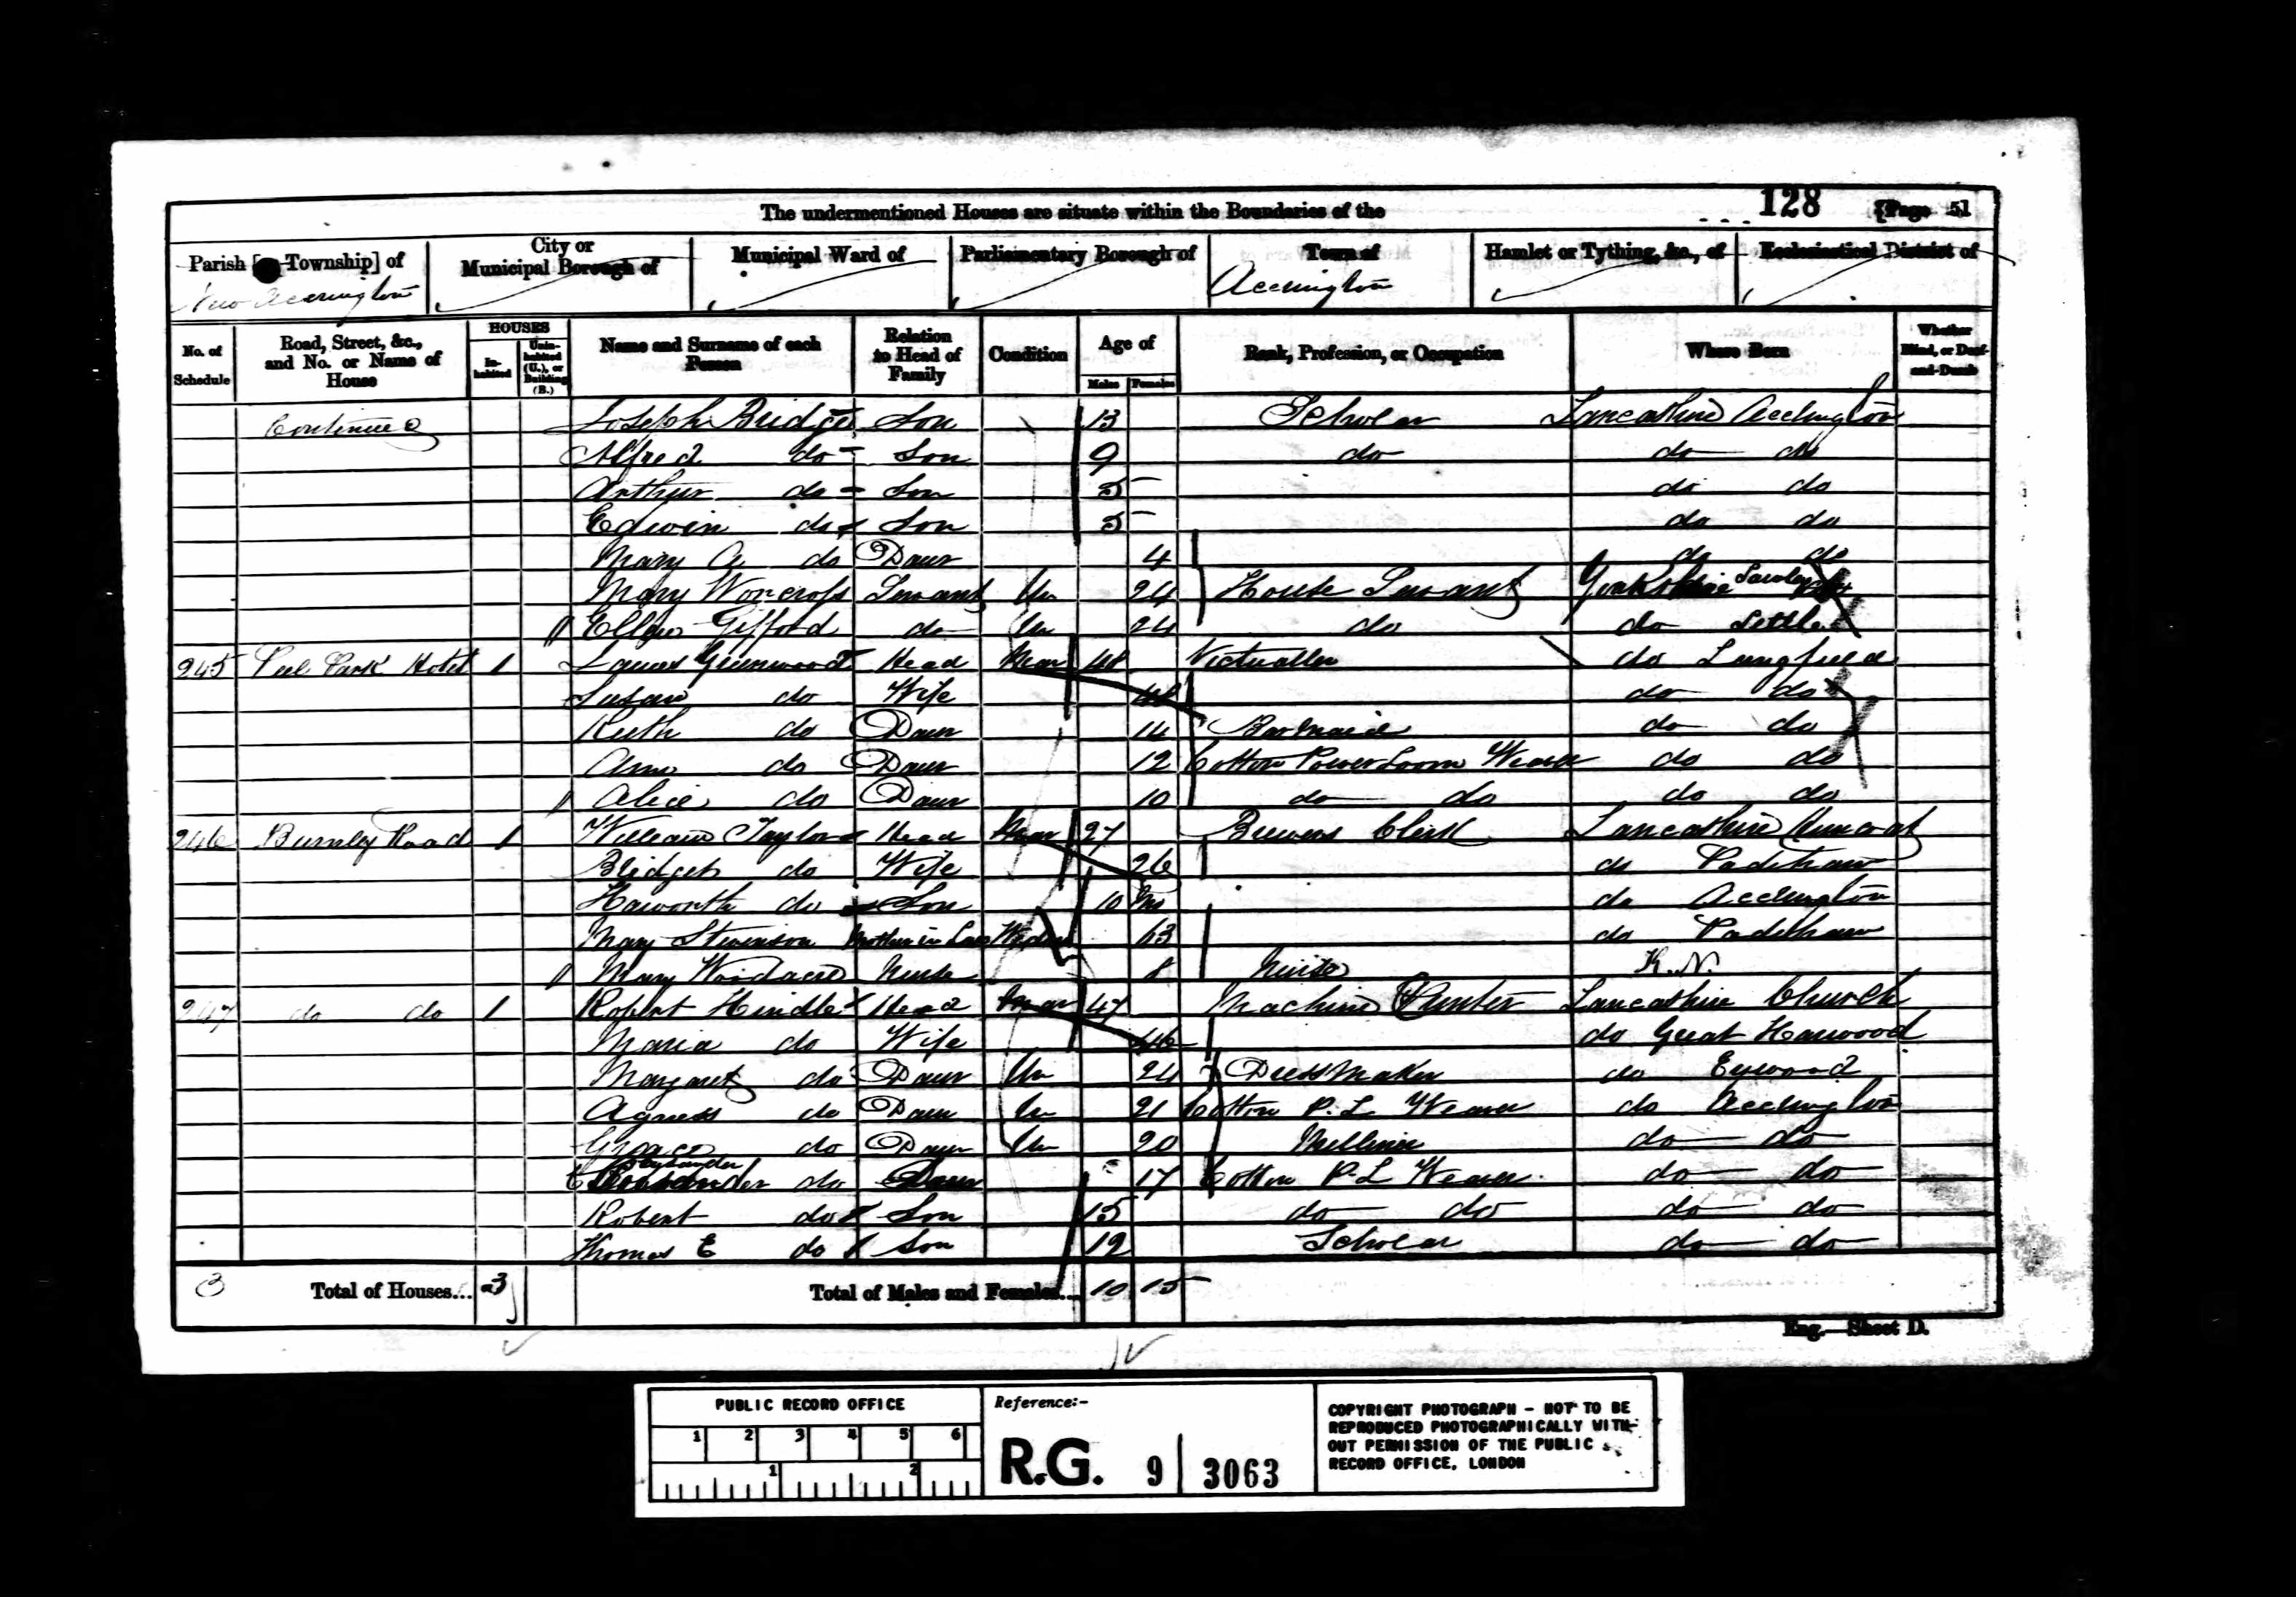 The undermentioned Houses are situate within the Boundaries of the
128 [Page 51
Parish [or Township] of
New Accrington
City or Municipal Borough of
Municipal Ward of
Parliamentary Borough of
Town of
Accrington
Hamlet or Tything, &c., of
Ecclesiastical District of
No. of Schedule
Road, Street, &c., and No. or Name of House
HOUSES
In-habited
Unin-habited (U.), or Building (B.)
Name and Surname of each Person
Relation to Head of Family
Condition
Age of
Males Females
Rank, Profession, or Occupation
Where Born
Whether Blind, or Deaf-and-Dumb
Continued Joseph Bridge Son 13 Scholar Lancashire Accrington
Alfred do Son 9 do do do
Arthur do Son 5 do do
Edwin do Son 5 do do
Mary A do Daur 4 do do
Mary Servant Un 24 House Servant Yorkshire
Ellen Gifford do Un 24 do do Settle
245 Peel Park Hotel 1 James Greenwood Head Mar 48 Victualler do Langfield
Susan do Wife do do
Ruth do Daur 14 Bar Maid do do
Ann do Daur 12 Cotton Power Loom Weaver do do
Alice do Daur 10 do do do do
246 Burnley Road 1 William Taylor Head Mar 27 Brewers Clerk Lancashire Huncoat
Bridget do Wife 26 do Padiham
Haworth do Son 10 Mo do Accrington
Mary Stevenson Mother in Law Widow 63 do Padiham
Mary Nurse 8 Nurse K. N.
247 do do 1 Robert Hindle Head Mar 47 Machine Printer Lancashire Church
Maria do Wife 46 do Great Harwood
Margaret do Daur Un 24 Dress Maker do Ewood
Agness do Daur Un 21 Cotton P. L. Weaver do Accrington
Grace do Daur Un 20 Milliner do do
do Daur 17 Cotton P. L. Weaver do do
Robert do Son 15 do do do do
Thomas E do Son 12 Scholar do do
3 Total of Houses... 3 Total of Males and Females... 10 15
Eng.—Sheet D.
PUBLIC RECORD OFFICE
1 2 3 4 5 6
1 2
Reference:-
R.G. 9 3063
COPYRIGHT PHOTOGRAPH - NOT TO BE
REPRODUCED PHOTOGRAPHICALLY WITH-
OUT PERMISSION OF THE PUBLIC
RECORD OFFICE, LONDON